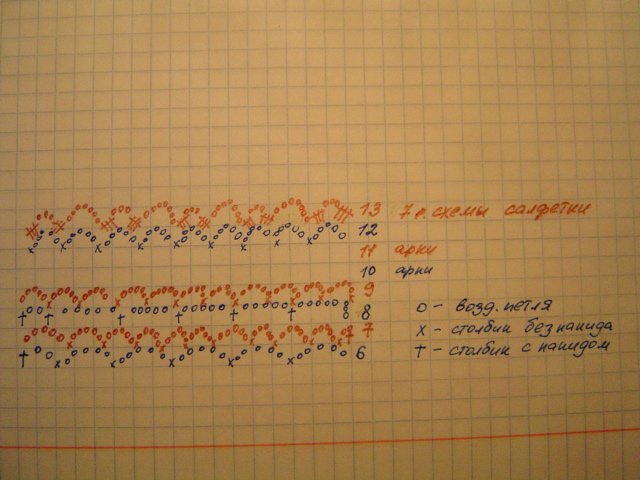 13 7 р. схемы салфетки
12
11 арки
10 арки
9
8 о - возд. петля
7 х - столбик без накида
6 † - столбик с накидом